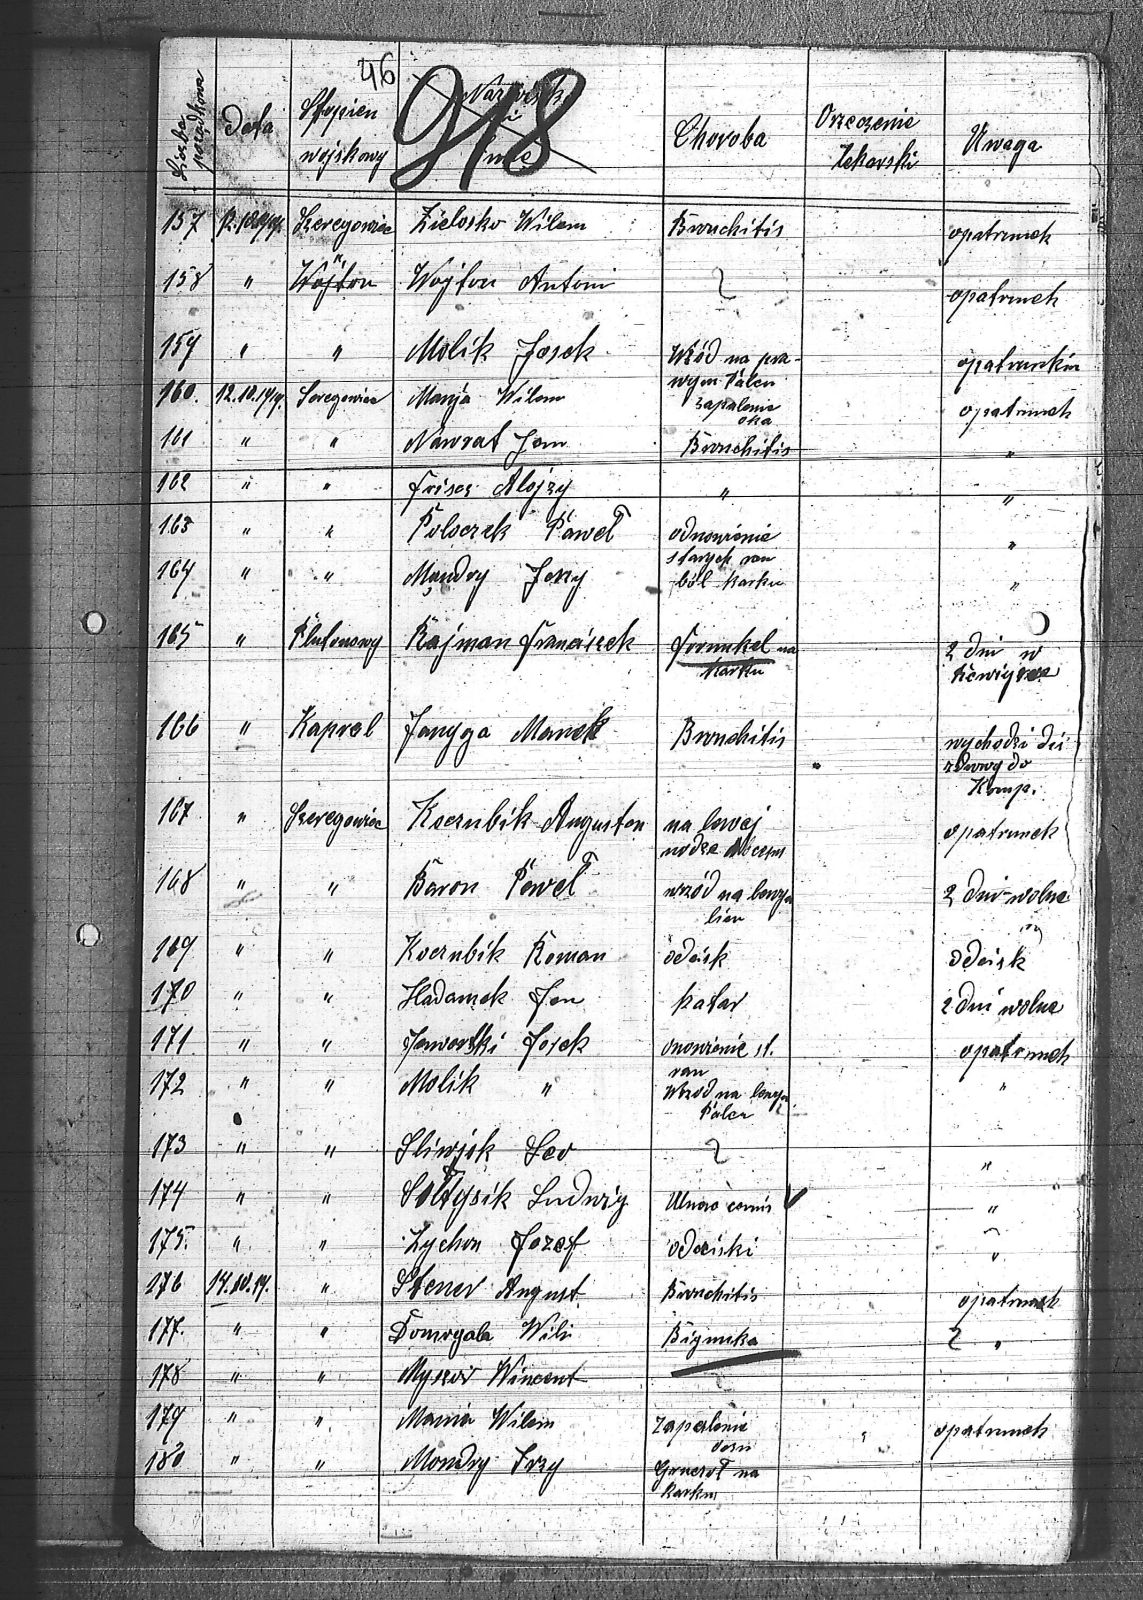 46
918
Liczba porządkowa Data Stopien wojskowy Nazwisk i imie Choroba Orzeczenie Lekarski Uwaga
157 12.10.1919. Szeregowiec Zielosko Wilem Bronchitis opatrunek
158 " " Wojton Wojton Antoni opatrunek
159 " " Molik Josek Wrzód na pra-
wym Palcu opatrunkin
160. 12.10.1919. Seregowiec Manja Wilem zapalenie
oka opatrunek
161 " " Nawrat Jan Bronchitis "
162 " " Friser Alojzy " "
163 " " Poloczek Paweł odnowienie
starych ran "
164 " " Mandry Jerzy ból karku "
165 " Plutonowy Rajman Franciszek Forunkel na
karku 2 dni w
Rewijrze
166 " Kaprol Janyga Manek Bronchitis wychodzi dzi
zdrowy do
Komp.
167 " Szeregowiec Kocrubik Auguston na lewej
nodze opatrunek
168 " " Baron Paweł wrzód na lewym 2 dni wolne
169 " " Kocrubik Roman odcisk odcisk
170 " " Hadamek Jan katar 2 dni wolne
171 " " Jaworski Josek onowienie st.
ran opatrunek
172 " " Molik " Wrzod na lewym
Palcu "
173 " " Sliwjok Leo "
174 " " Sołtysik Ludwig Ulcus "
175. " " Zychon Jozef odciski "
176 14.10.19. " Stener August. Bronchitis opatrunek
177. " " Domogala Wili Bigunka "
178 " " Myszor Wincent
179 " " Mania Wilem zapalenie opatrunek
180 " " Mondry Jrzy Gruczoł na
karku